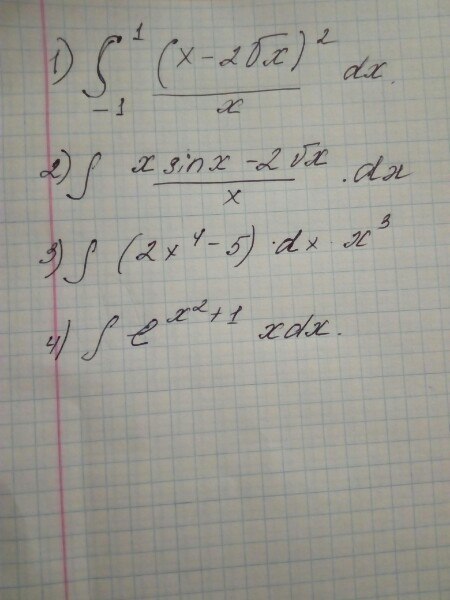 1) ∫₋₁¹ (x - 2√x)² / x dx.
2) ∫ (x sinx - 2√x) / x · dx
3) ∫ (2x⁴ - 5) · dx · x³
4) ∫ e^(x²+1) xdx.